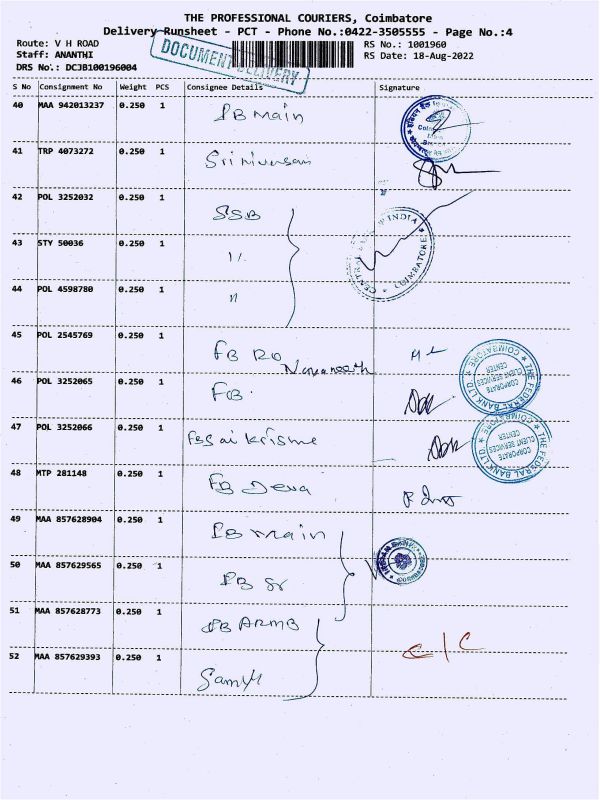 THE PROFESSIONAL COURIERS, Coimbatore
Delivery Runsheet - PCT - Phone No.:0422-3505555 - Page No.:4
Route: V H ROAD
Staff: ANANTHI
DRS No.: DCJB100196004
DOCUMENT DELIVERY
RS No.: 1001960
RS Date: 18-Aug-2022
S No Consignment No Weight PCS Consignee Details Signature
40 MAA 942013237 0.250 1 IB Main
41 TRP 4073272 0.250 1 Srinivasan
42 POL 3252032 0.250 1 SSB
43 STY 50036 0.250 1 "
44 POL 4598780 0.250 1 "
CENTRAL INDIA COIMBATORE
45 POL 2545769 0.250 1 FB RO
Navaneeth
THE FEDERAL BANK LTD. COIMBATORE
CORPORATE CLIENT SERVICES CENTER
46 POL 3252065 0.250 1 FB
47 POL 3252066 0.250 1 FB Sai Krisme
THE FEDERAL BANK LTD. COIMBATORE
CORPORATE CLIENT SERVICES CENTER
48 MTP 281148 0.250 1 FB Deva
49 MAA 857628904 0.250 1 IB Main
50 MAA 857629565 0.250 1 IB
51 MAA 857628773 0.250 1 IB ARMB
52 MAA 857629393 0.250 1
C/C